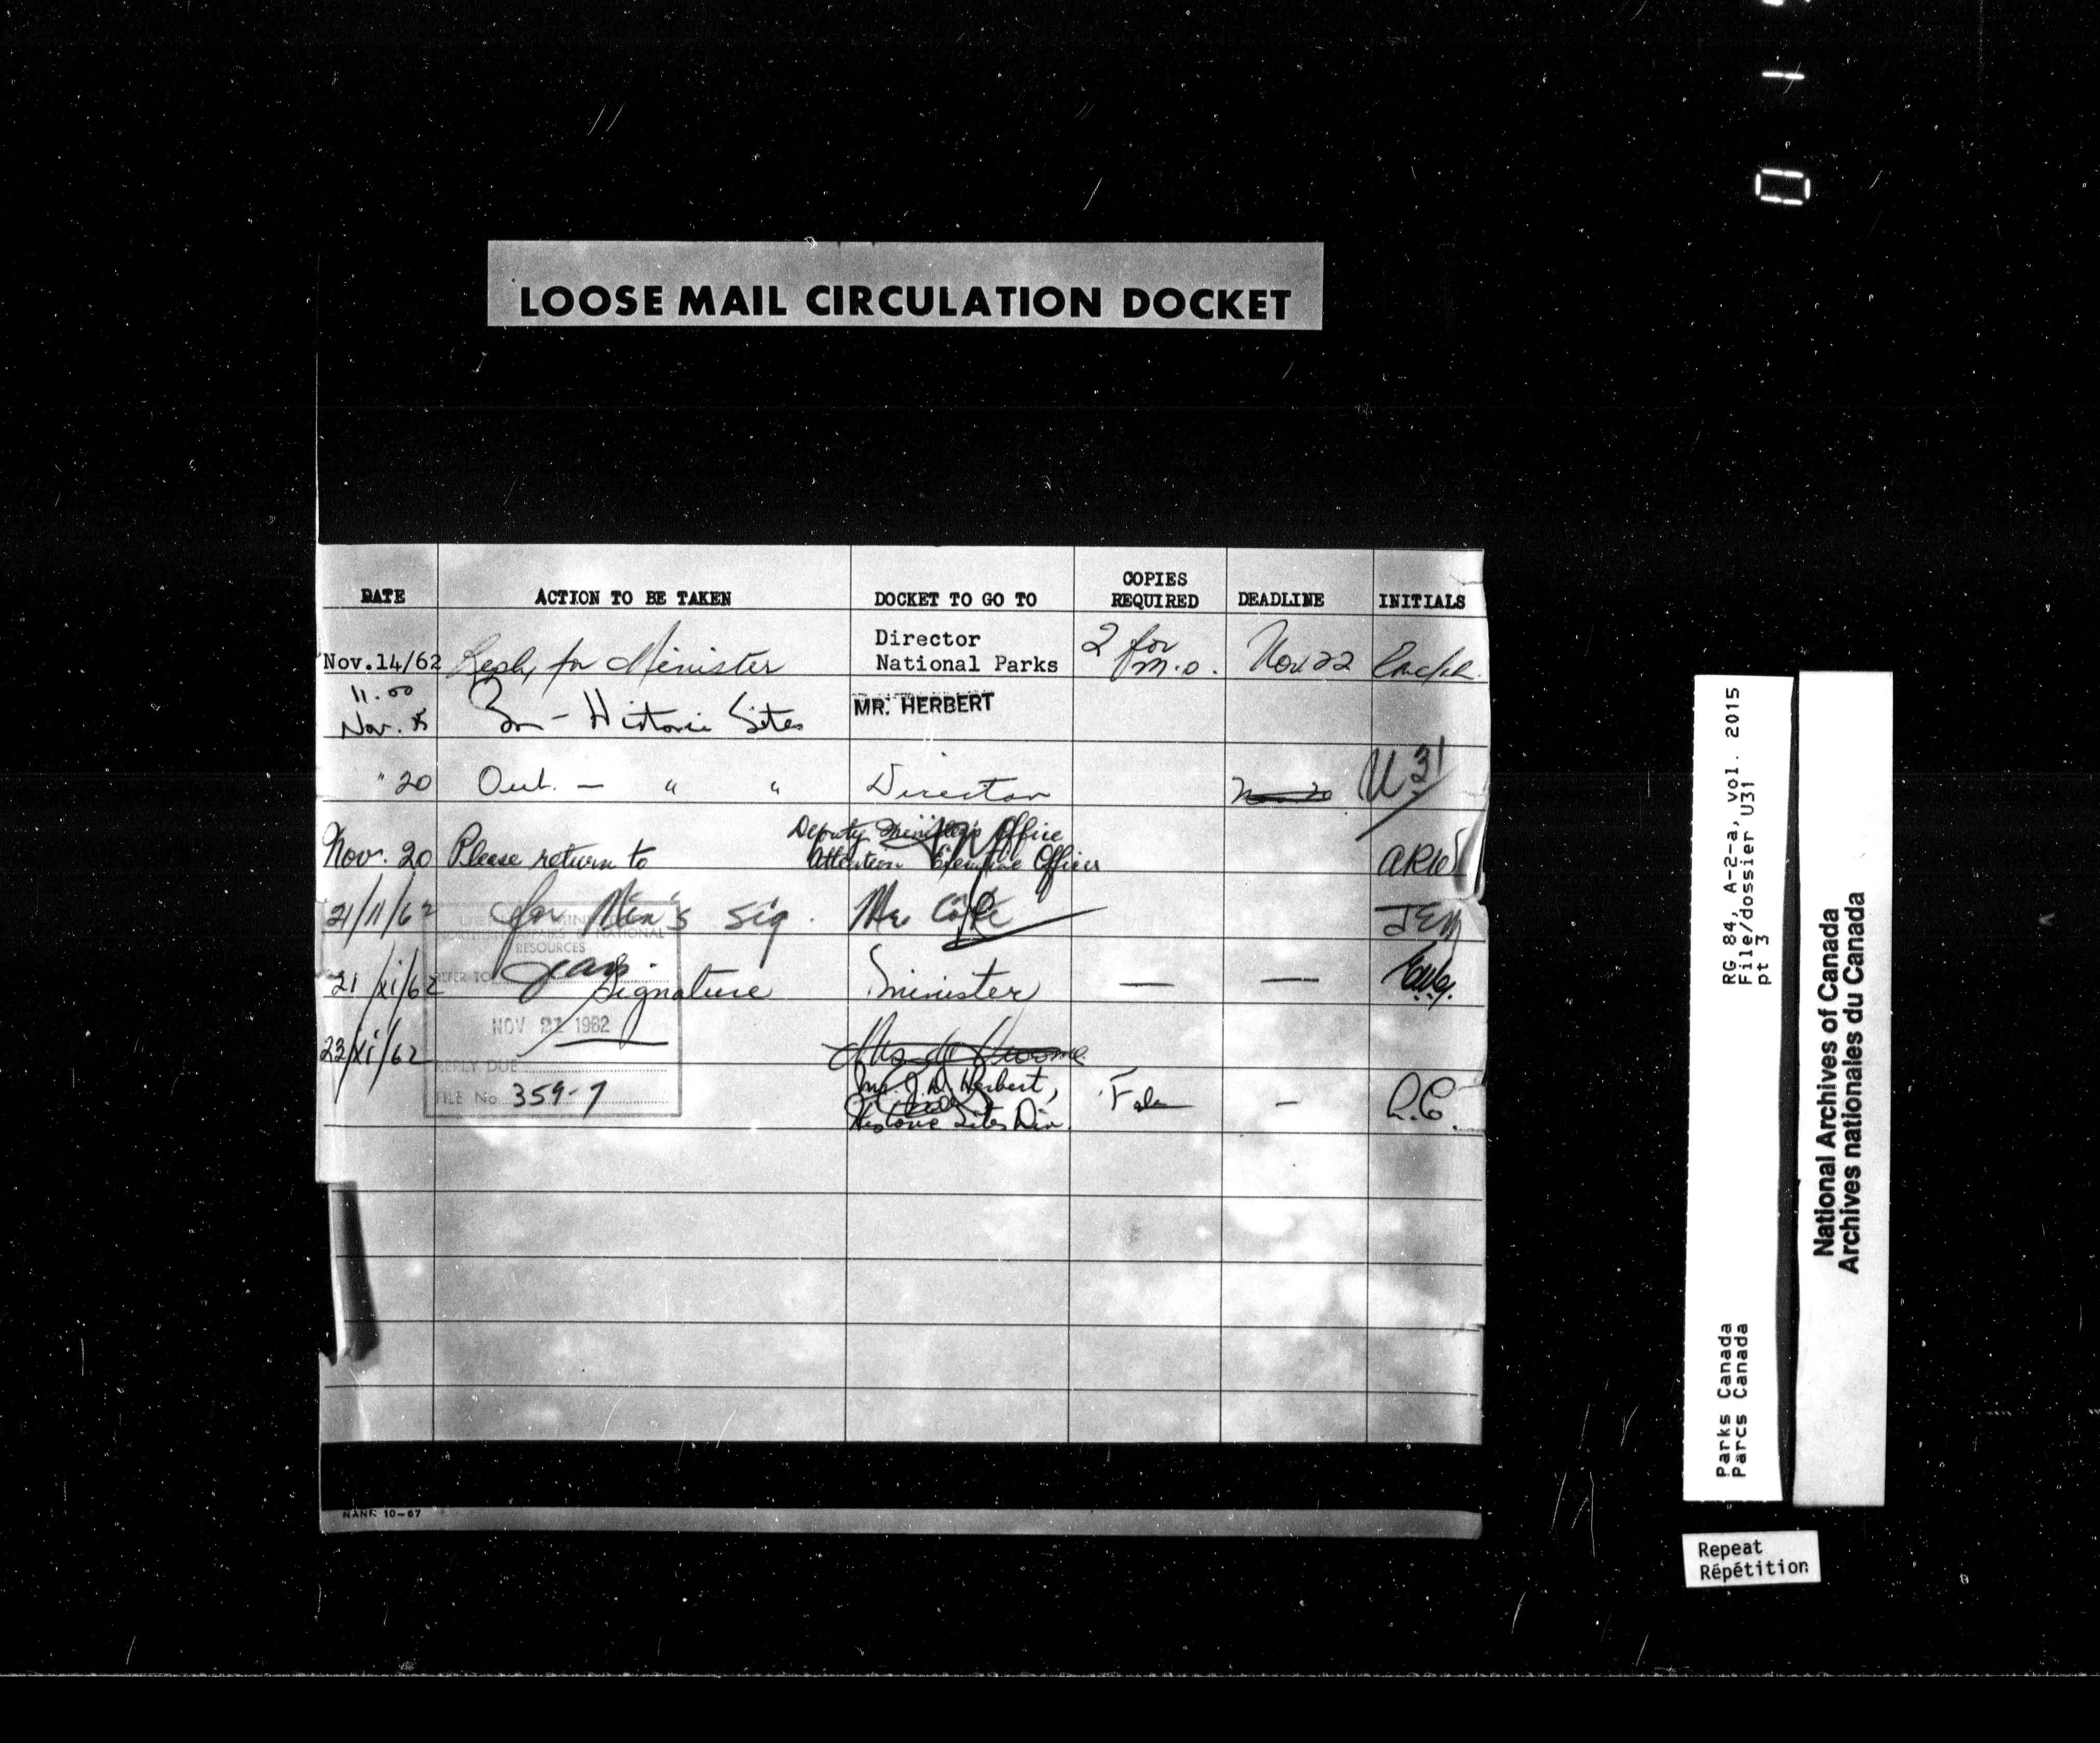 LOOSE MAIL CIRCULATION DOCKET
DATE ACTION TO BE TAKEN DOCKET TO GO TO COPIES REQUIRED DEADLINE INITIALS
Nov.14/62 Reply for Minister Director National Parks 2 for M.O. Nov 22
11.00 Nov. 15 In - Historic Sites MR. HERBERT
" 20 Out. - " " Director Nov 20 U 31
Nov. 20 Please return to Deputy Minister's Office Attention Executive Officer ARW
21/11/62 for Min's sig. Mr. Côté JEM
21/xi/62 Signature Minister — —
23/xi/62 Mr. J.D. Herbert, Historic Sites Div. File - R.C.
MINISTER
NORTHERN AFFAIRS & NATIONAL
RESOURCES
REFER TO
NOV 21 1962
REPLY DUE
FILE No. 359-7
NANR 10-67
RG 84, A-2-a, vol. 2015
File/dossier U31
pt 3
Parks Canada
Parcs Canada
National Archives of Canada
Archives nationales du Canada
Repeat
Répétition